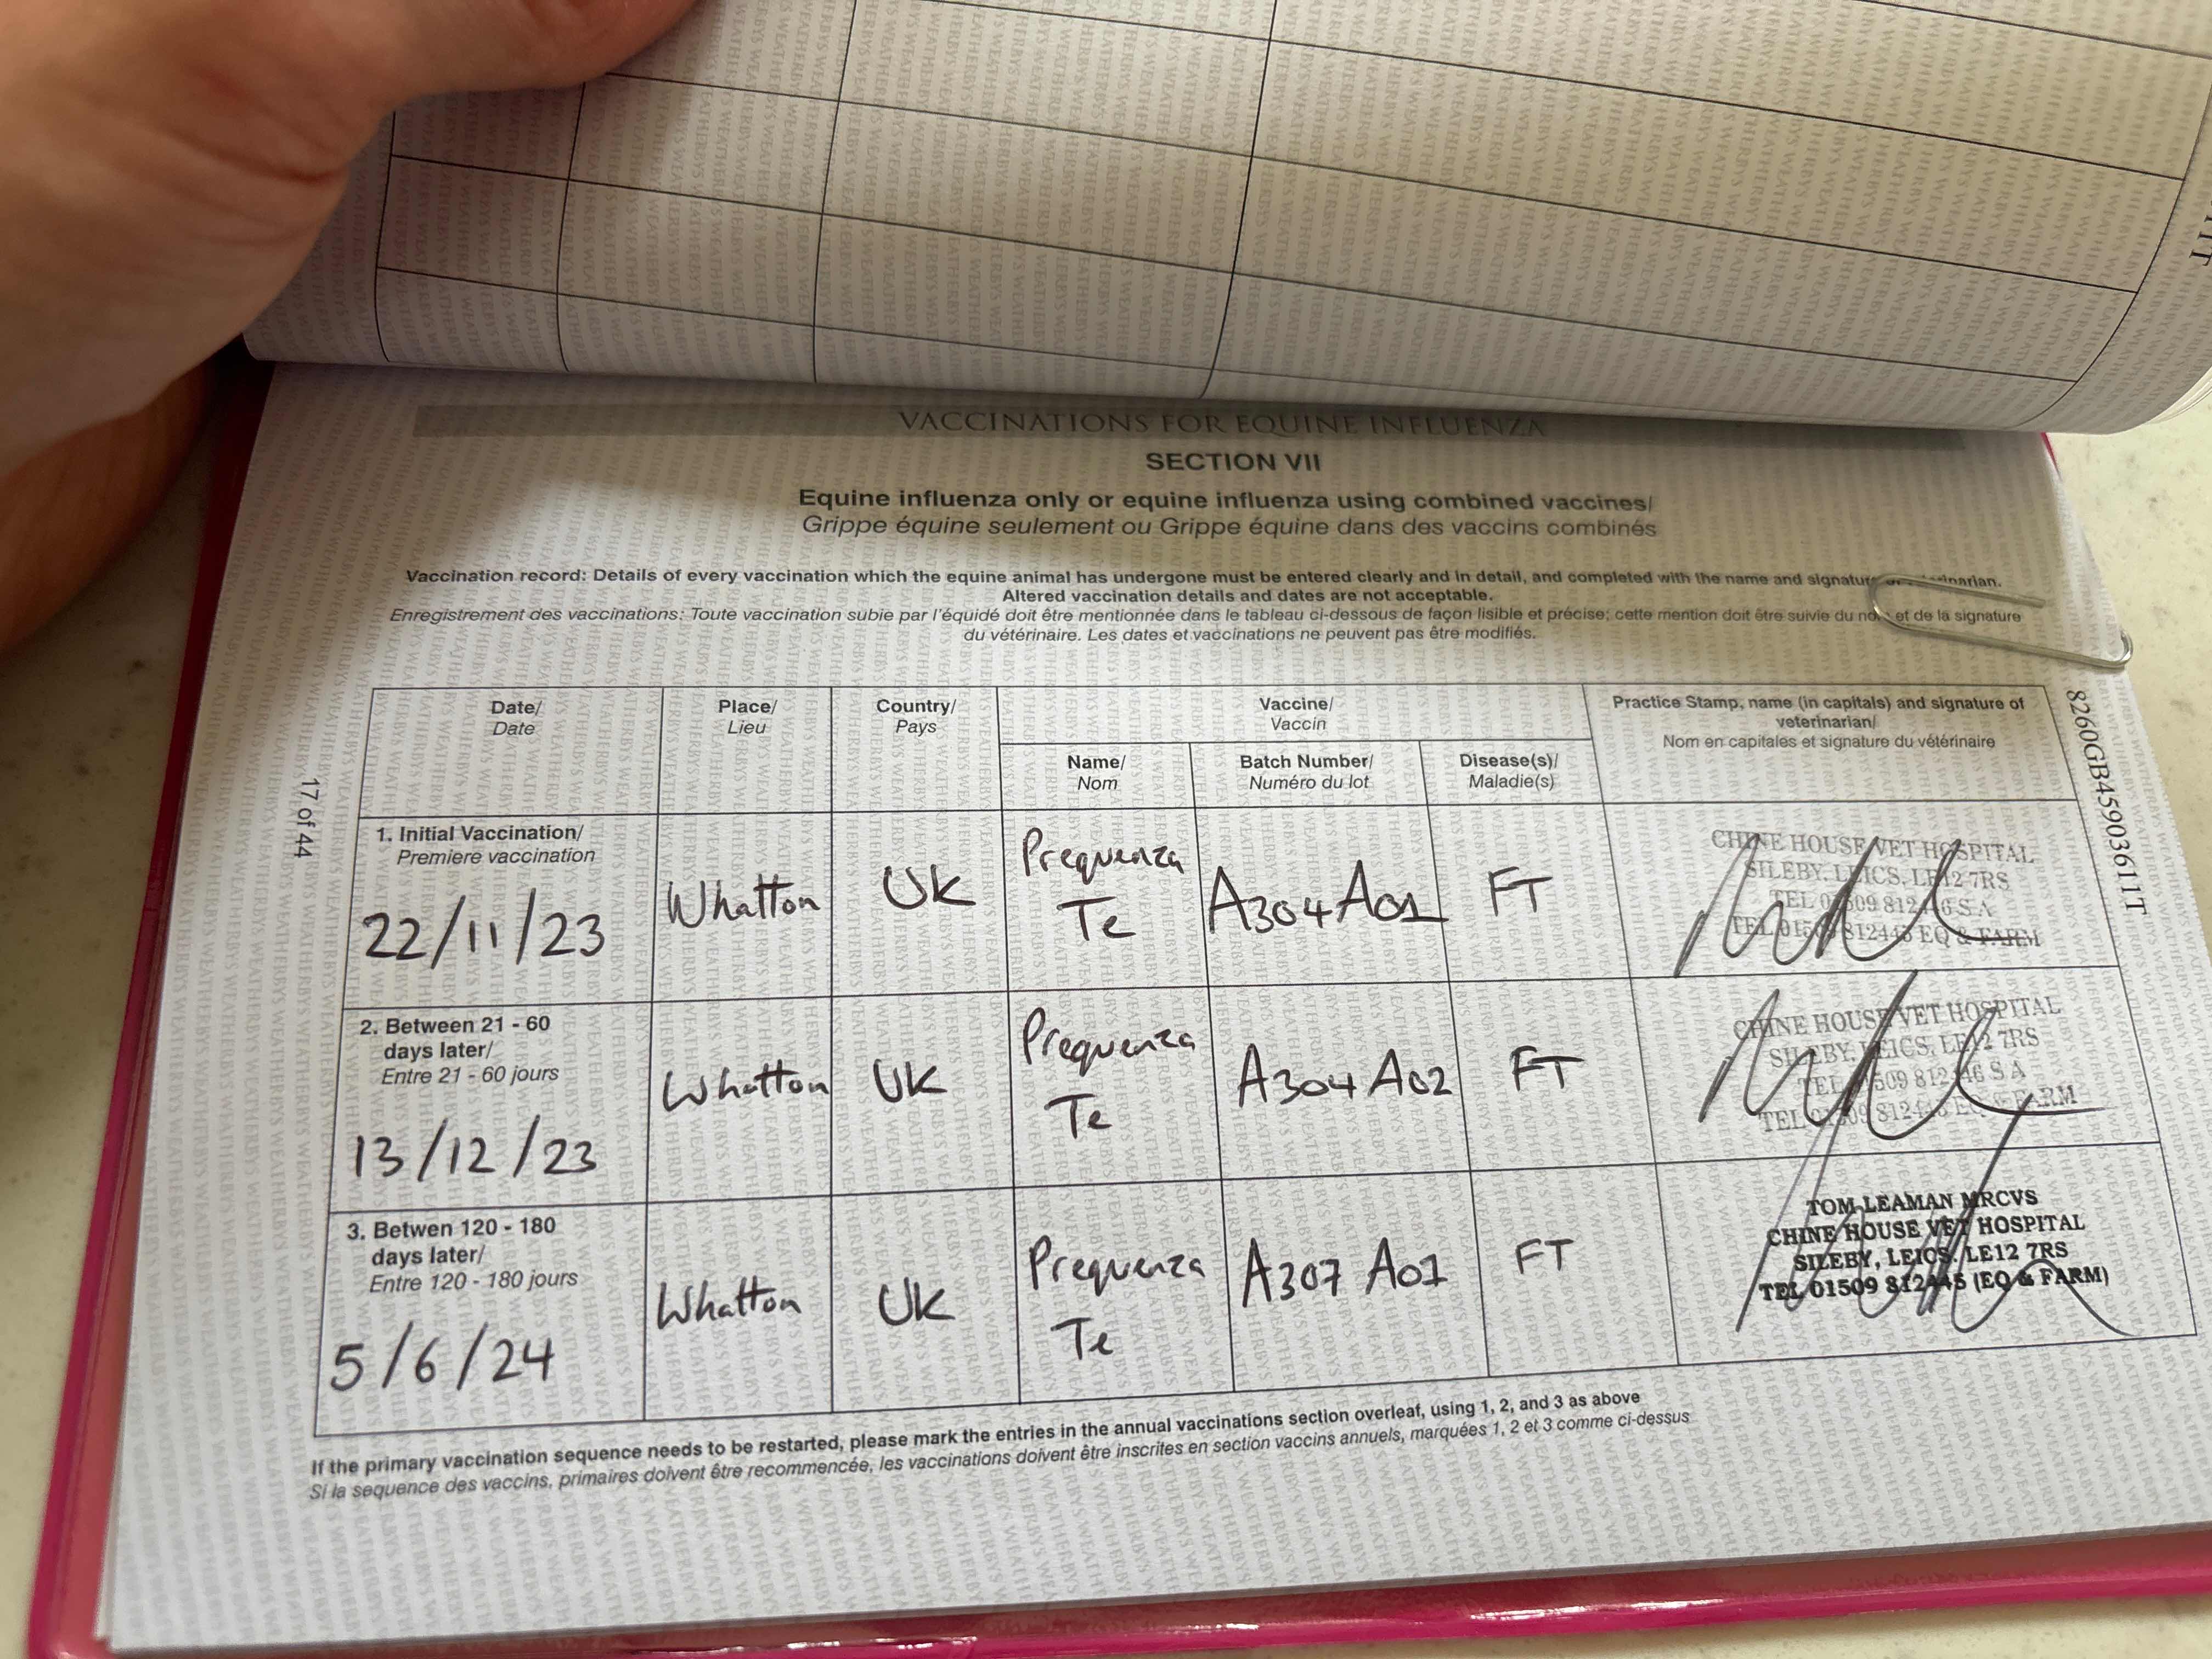 VACCINATIONS FOR EQUINE INFLUENZA
SECTION VII
Equine influenza only or equine influenza using combined vaccines/
Grippe équine seulement ou Grippe équine dans des vaccins combinés
Vaccination record: Details of every vaccination which the equine animal has undergone must be entered clearly and in detail, and completed with the name and signature
Altered vaccination details and dates are not acceptable.
Enregistrement des vaccinations: Toute vaccination subie par l'équidé doit être mentionnée dans le tableau ci-dessous de façon lisible et précise; cette mention doit être suivie du et de la signature
du vétérinaire. Les dates et vaccinations ne peuvent pas être modifiés.
Date/
Date
Place/
Lieu
Country/
Pays
Vaccine/
Vaccin
Name/
Nom
Batch Number/
Numéro du lot
Disease(s)/
Maladie(s)
Practice Stamp, name (in capitals) and signature of
veterinarian/
Nom en capitales et signature du vétérinaire
1. Initial Vaccination/
Premiere vaccination
22/11/23
Whatton
UK
Prequenza
Te
A304A01
FT
CHINE HOUSE VET HOSPITAL
SILEBY, LEICS, LE12 7RS
TEL 01509 812446 S A
TEL 01509 812445 EQ & FARM
2. Between 21 - 60
days later/
Entre 21 - 60 jours
13/12/23
Whatton
UK
Prequenza
Te
A304 A02
FT
CHINE HOUSE VET HOSPITAL
SILEBY, LEICS, LE12 7RS
TEL 01509 812446 S A
TEL 01509 812445 EQ & FARM
3. Betwen 120 - 180
days later/
Entre 120 - 180 jours
5/6/24
Whatton
UK
Prequenza
Te
A307 A01
FT
TOM LEAMAN MRCVS
CHINE HOUSE VET HOSPITAL
SILEBY, LEICS. LE12 7RS
TEL 01509 812445 (EQ & FARM)
If the primary vaccination sequence needs to be restarted, please mark the entries in the annual vaccinations section overleaf, using 1, 2, and 3 as above
Si la sequence des vaccins, primaires doivent être recommencée, les vaccinations doivent être inscrites en section vaccins annuels, marquées 1, 2 et 3 comme ci-dessus
17 of 44
8260GB45903611T